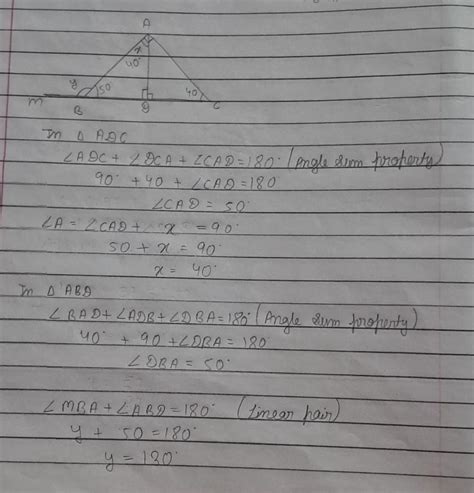 A
x
40°
y
50
40
m
B
D
C
In △ ADC
∠ADC + ∠DCA + ∠CAD = 180° (Angle sum property)
90° + 40 + ∠CAD = 180
∠CAD = 50°
∠A = ∠CAD + x = 90°
50 + x = 90°
x = 40°
In △ ABD
∠BAD + ∠ADB + ∠DBA = 180° (Angle sum property)
40° + 90 + ∠DBA = 180
∠DBA = 50°
∠MBA + ∠ABD = 180° (Linear pair)
y + 50 = 180°
y = 130°